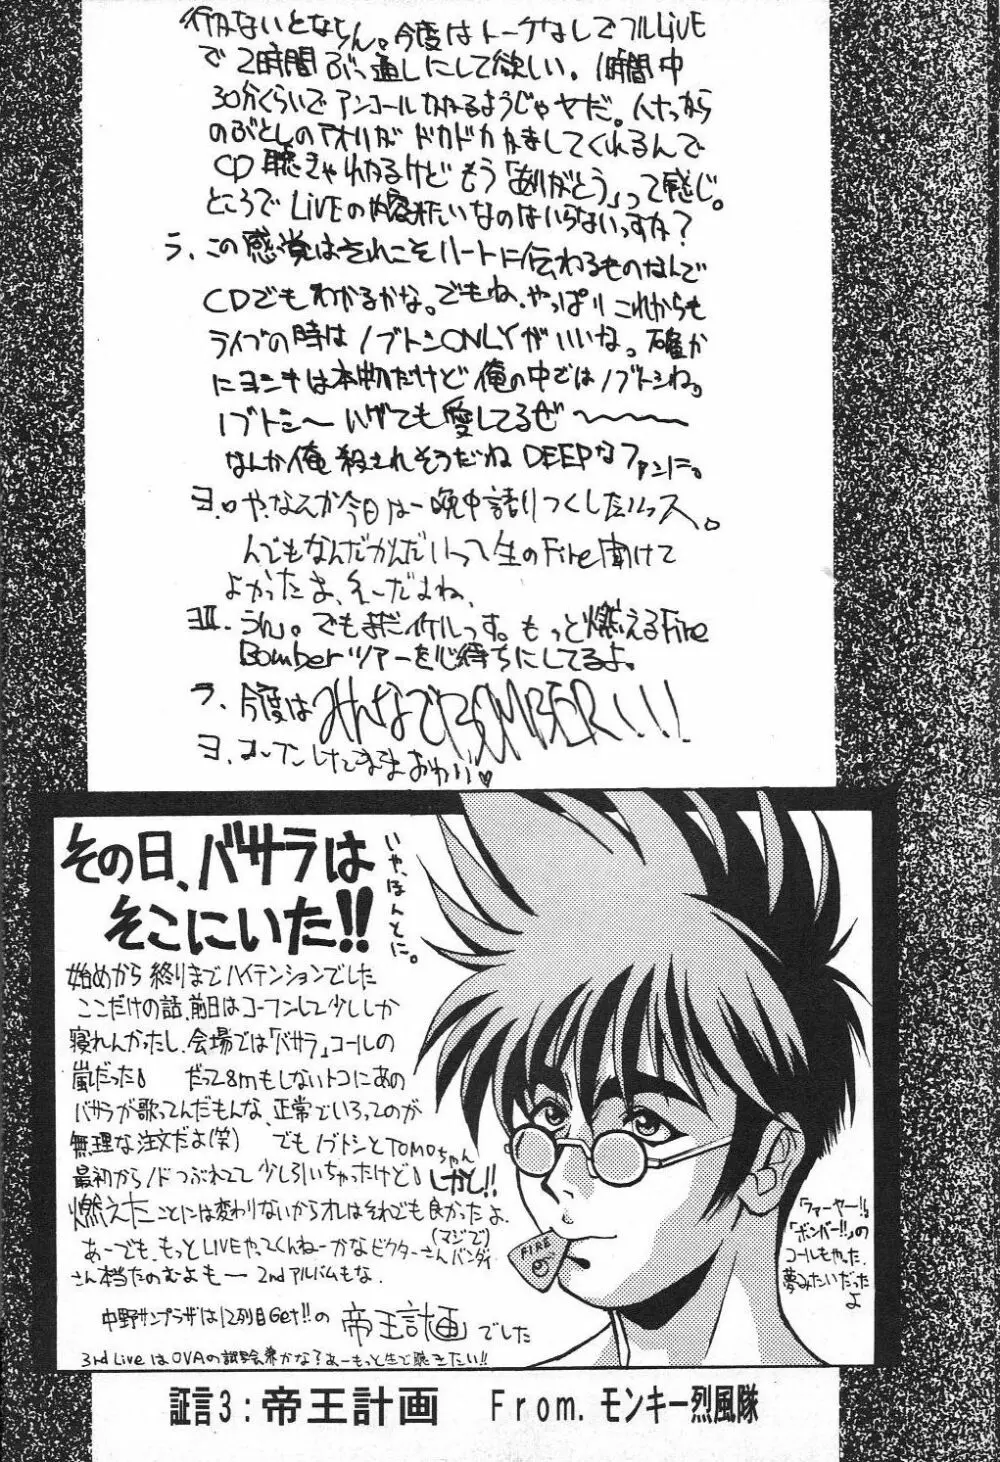 行かないとならん。今度はトークなしでフルLiVE
で2時間ぶっ通しにして欲しい。1時間中
30分くらいでアンコールかかるようじゃヤだ。人たっから
のぶとしのアオリが ドカドカかましてくれるんで
CD聴きゃわかるけど もう「ありがとう」って感じ。
ところで LiVEの内容みたいなのはいらないっすか?
ラ、この感覚はそれこそハートに伝わるものなんで
CDでもわかるかな。でもね、やっぱりこれからも
ライブの時はノブトシONLYがいいな。確か
にヨシキは本物だけど俺の中ではノブトシね。
ノブトシ〜 ハゲても愛してるぜ〜〜〜〜
なんか俺殺されそうだね DEEPなファンに。
ヨ.や、なんか今日は一晩中語りつくしたいっス。
んでもなんだかんだいって生のFire聞けて
よかったよ、えーだよね、
ヨII. うん。でもまだイケルっす。もっと燃えるFire
Bomberツアーを心待ちにしてるよ。
ラ.今度はみんなでBOMBER!!!
ヨ.コーフンしたままおわり♥
その日、バサラは
そこにいた!!
いや、ほんとに。
始めから終りまでハイテンションでした
ここだけの話、前日はコーフンして少ししか
寝れんかったし、会場では「バサラ」コールの
嵐だった♪ だって8mもしないトコにあの
バサラが歌ってんだもんな、正常でいろってのが
無理な注文だよ(笑) でもノブトシとTOMOちゃん
最初からノドつぶれてて少し引いちゃったけど♪しかし!!
燃えたことには変わりないからオレはそれでも良かったよ.
(マジで)
あーでも、もっとLIVEやってくんねーかなビクターさんバンダイ
さん本当たのむよもー 2ndアルバムもな.
中野サンプラザは12列目Get!!の 帝王計画 でした
3rd Live はOVAの試写会兼かな?あーもっと生で聴きたい!!
FIRE
「ファーヤー!!」
「ボンバー!!」の
コールもやった.
夢みたいだった
よ
証言3:帝王計画 From.モンキー烈風隊